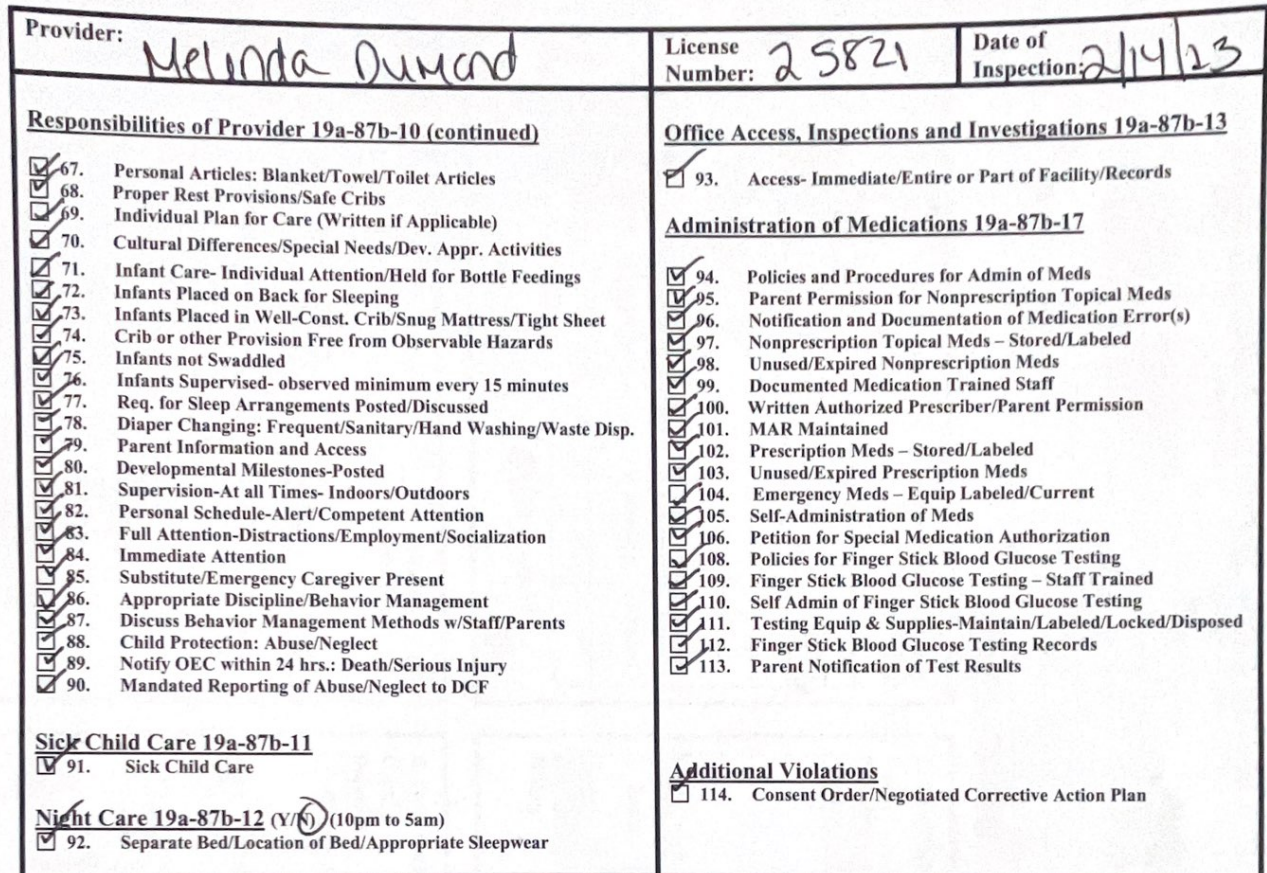 Provider: Melinda Dumond
License Number: 25821
Date of Inspection: 2/14/23
Responsibilities of Provider 19a-87b-10 (continued)
67. Personal Articles: Blanket/Towel/Toilet Articles
68. Proper Rest Provisions/Safe Cribs
69. Individual Plan for Care (Written if Applicable)
70. Cultural Differences/Special Needs/Dev. Appr. Activities
71. Infant Care- Individual Attention/Held for Bottle Feedings
72. Infants Placed on Back for Sleeping
73. Infants Placed in Well-Const. Crib/Snug Mattress/Tight Sheet
74. Crib or other Provision Free from Observable Hazards
75. Infants not Swaddled
76. Infants Supervised- observed minimum every 15 minutes
77. Req. for Sleep Arrangements Posted/Discussed
78. Diaper Changing: Frequent/Sanitary/Hand Washing/Waste Disp.
79. Parent Information and Access
80. Developmental Milestones-Posted
81. Supervision-At all Times- Indoors/Outdoors
82. Personal Schedule-Alert/Competent Attention
83. Full Attention-Distractions/Employment/Socialization
84. Immediate Attention
85. Substitute/Emergency Caregiver Present
86. Appropriate Discipline/Behavior Management
87. Discuss Behavior Management Methods w/Staff/Parents
88. Child Protection: Abuse/Neglect
89. Notify OEC within 24 hrs.: Death/Serious Injury
90. Mandated Reporting of Abuse/Neglect to DCF
Sick Child Care 19a-87b-11
91. Sick Child Care
Night Care 19a-87b-12 (Y/N) (10pm to 5am)
92. Separate Bed/Location of Bed/Appropriate Sleepwear
Office Access, Inspections and Investigations 19a-87b-13
93. Access- Immediate/Entire or Part of Facility/Records
Administration of Medications 19a-87b-17
94. Policies and Procedures for Admin of Meds
95. Parent Permission for Nonprescription Topical Meds
96. Notification and Documentation of Medication Error(s)
97. Nonprescription Topical Meds – Stored/Labeled
98. Unused/Expired Nonprescription Meds
99. Documented Medication Trained Staff
100. Written Authorized Prescriber/Parent Permission
101. MAR Maintained
102. Prescription Meds – Stored/Labeled
103. Unused/Expired Prescription Meds
104. Emergency Meds – Equip Labeled/Current
105. Self-Administration of Meds
106. Petition for Special Medication Authorization
108. Policies for Finger Stick Blood Glucose Testing
109. Finger Stick Blood Glucose Testing – Staff Trained
110. Self Admin of Finger Stick Blood Glucose Testing
111. Testing Equip & Supplies-Maintain/Labeled/Locked/Disposed
112. Finger Stick Blood Glucose Testing Records
113. Parent Notification of Test Results
Additional Violations
114. Consent Order/Negotiated Corrective Action Plan